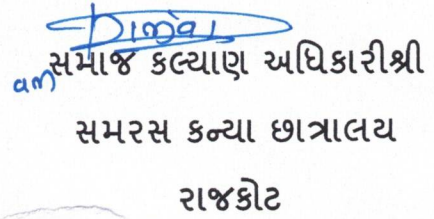 સમાજ કલ્યાણ અધિકારીશ્રી
સમરસ કન્યા છાત્રાલય
રાજકોટ